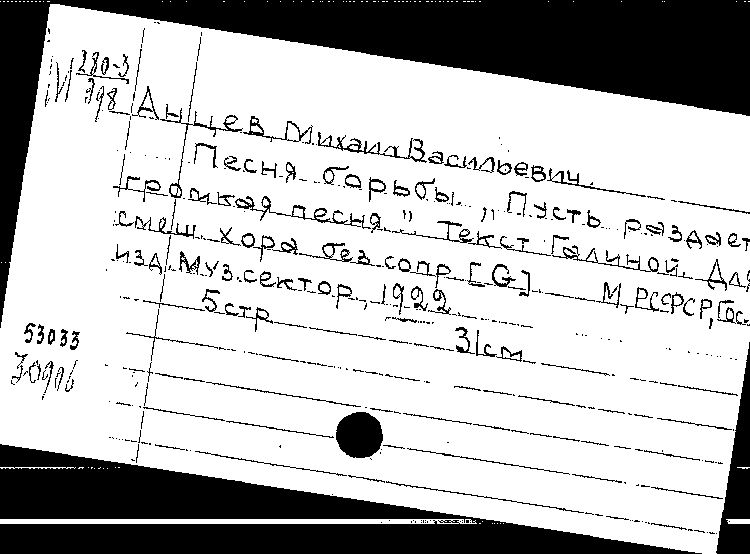 М 280-3
398
Анцев, Михаил Васильевич.
Песня борьбы. „Пусть раздает
громкая песня" Текст Галиной. Для
смеш. хора без сопр [G] М, РСФСР, Гос.
изд. Муз.сектор, 1922
5 стр 31 см
53033
30906